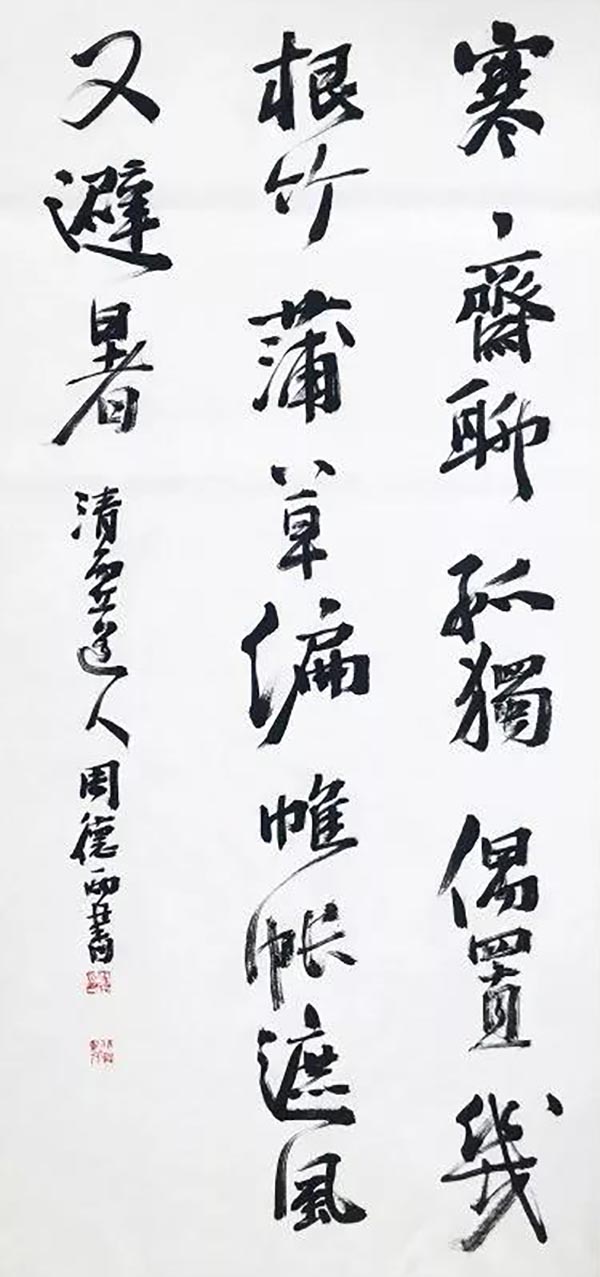 寒齋聊孤獨偶置幾
根竹蒲草編帷帳遮風
又避暑
清 道人周德雨書